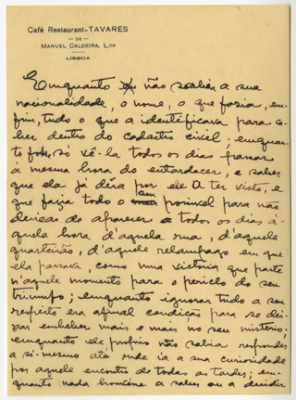 Café Restaurant-TAVARES
DE
MANUEL CALDEIRA, L.DA
LISBOA
Emquanto não soubera a sua
nacionalidade, o nome, o que fazia, em-
fim, tudo o que a identificava para ca-
ber dentro do cadastro civil; emquan-
to foi só vê-la todos os dias passar
á mesma hora do entardecer, e saber
que ela já dera por ele a ter visto, e
que fazia todo o seu possivel para não
deixar de aparecer todos os dias á-
quela hora d'aquela rua, d'aquele
quarteirão, d'aquele relampago em que
ela passava, como uma victoria que parte
n'aquele momento para o periclo do seu
triumfo; emquanto ignorar tudo a seu
respeito era afinal condição para se dei-
xar embeber mais e mais no seu misterio;
emquanto ele proprio não sabia responder
a si-mesmo até onde ia a sua curiosidade
por aquele encontro de todas as tardes; em-
quanto nada houvera a saber ou a decidir